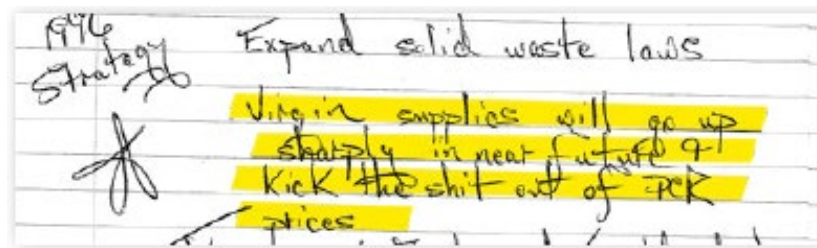 1996 Expand solid waste laws
Strategy
Virgin supplies will go up
sharply in near future &
kick the shit out of PCR
prices